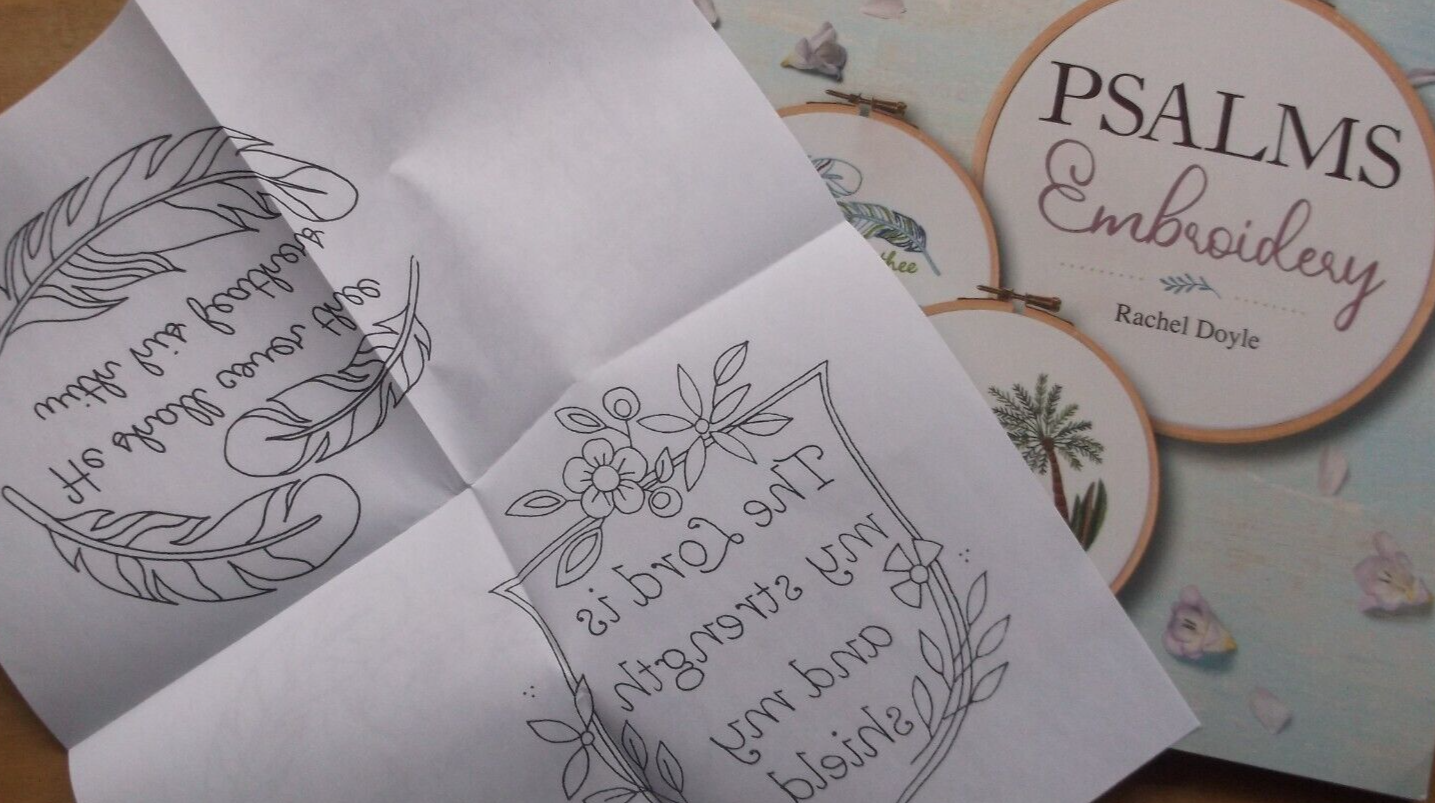 PSALMS
Embroidery
Rachel Doyle
thee
He shall cover thee
with his feathers
The Lord is
my strength
and my
shield